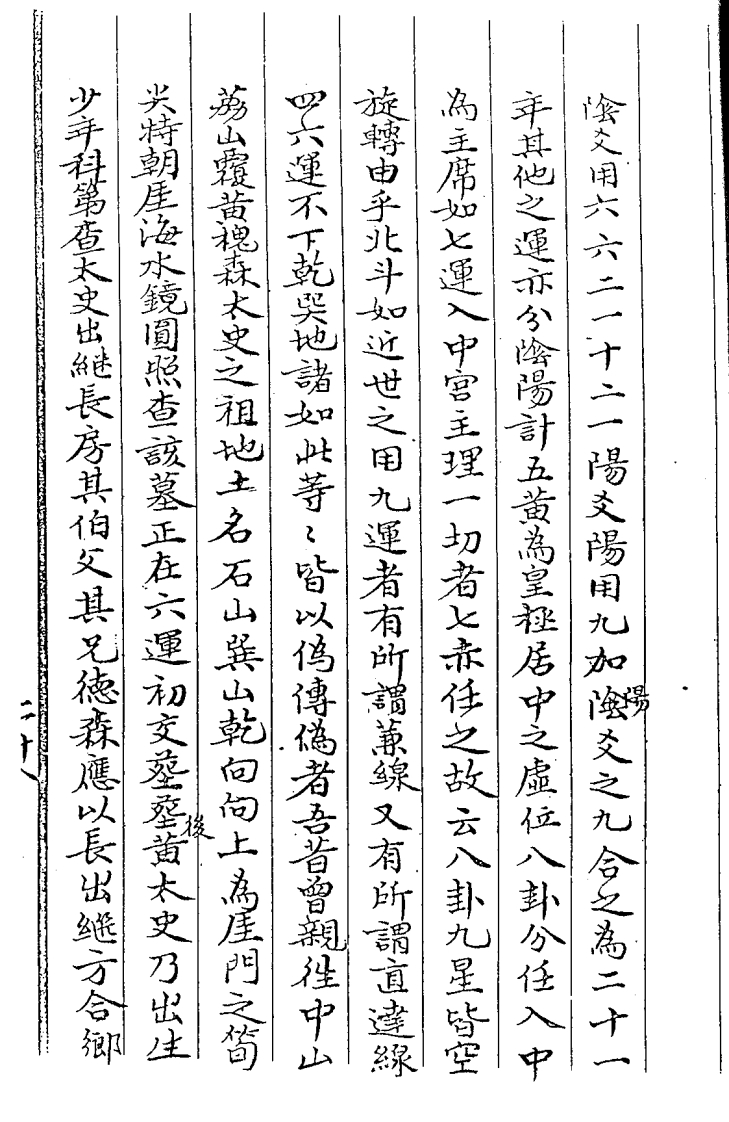 陰爻用六六二一十二一陽爻陽用九加陰陽爻之九合之為二十一
年其他之運亦分陰陽計五黃為皇極居中之虛位八卦分任入中
為主席如七運入中宮主理一切者七赤任之故云八卦九星皆空
旋轉由乎北斗如近世之用九運者有所謂兼線又有所謂直達線
四六運不下乾巽地諸如此等〻皆以偽傳偽者吾昔曾親徃中山
荔山覆黃槐森太史之祖地土名石山巽山乾向向上為厓門之筍
尖特朝厓海水鏡圓照查該墓正在六運初交塟塟後黃太史乃出生
少年科第查太史出継長房其伯父其兄德森應以長出繼方合鄉
二十八